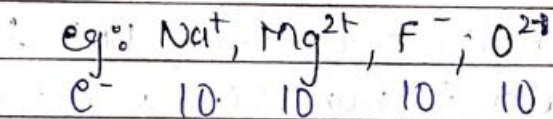 eg: Na⁺, Mg²⁺, F⁻, O²⁻
e⁻ 10 10 10 10